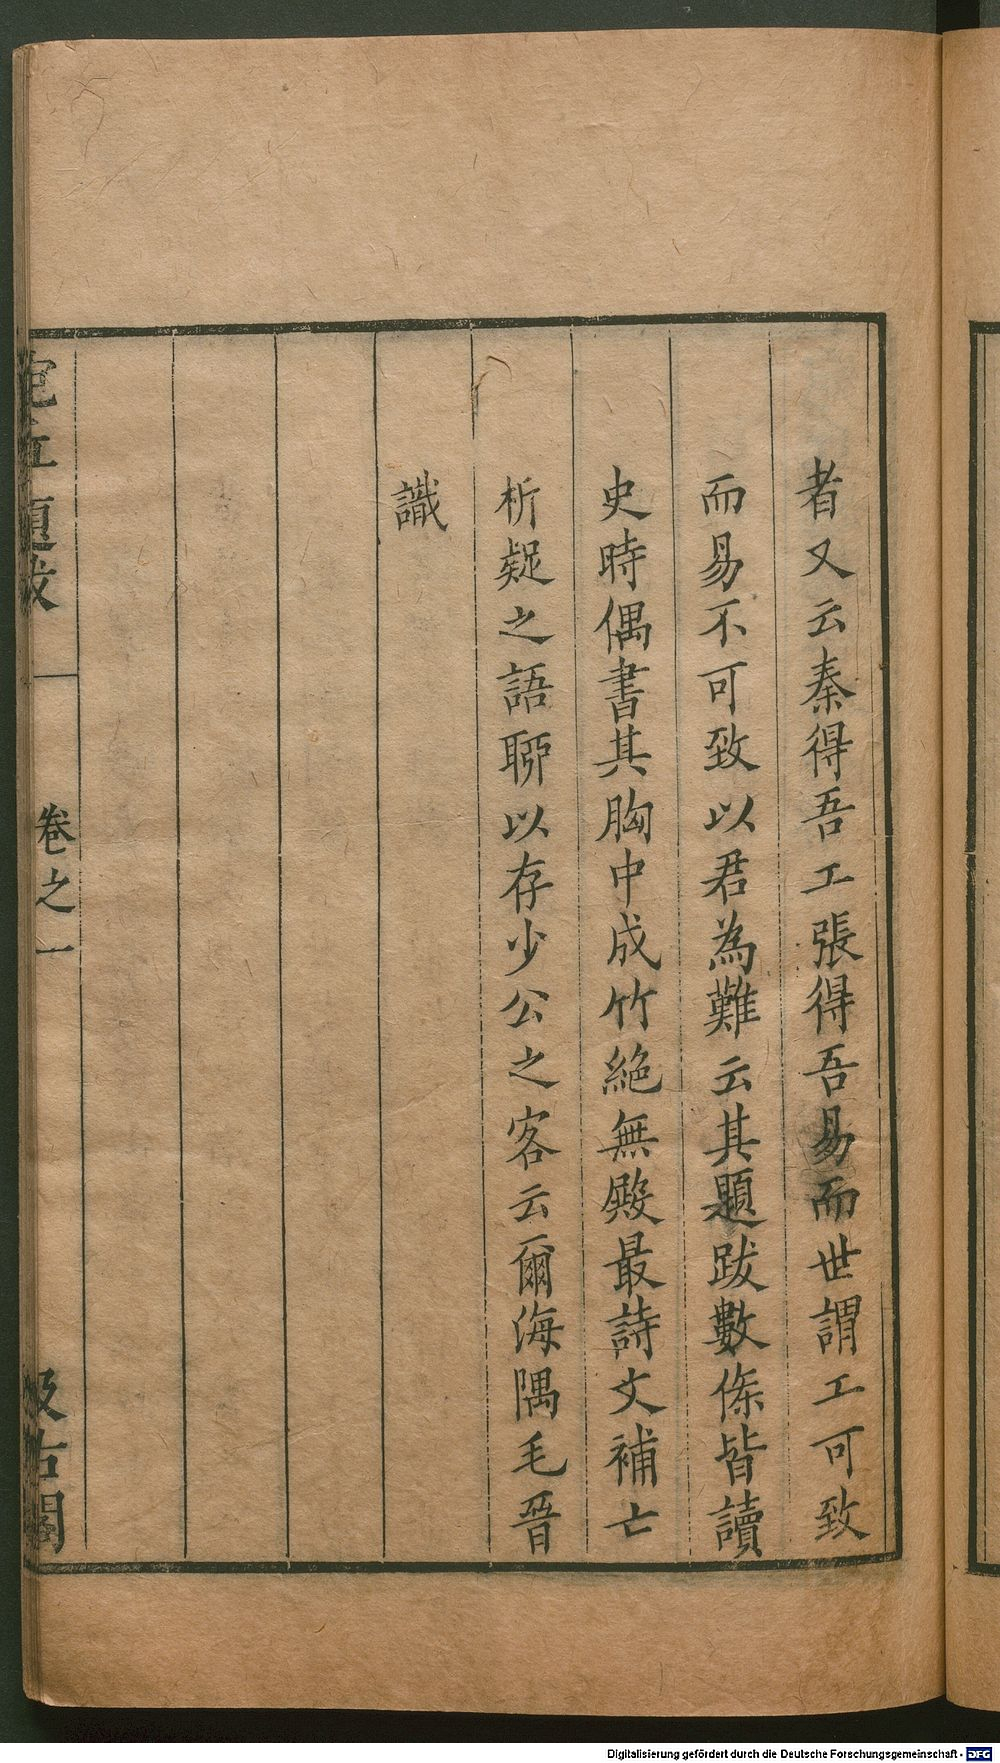 者又云秦得吾工張得吾易而世謂工可致
而易不可致以君為難云其題跋數條皆讀
史時偶書其胸中成竹絶無殿最詩文補亡
析疑之語聊以存少公之客云爾海隅毛晉
識
題跋
卷之一
汲古閣
Digitalisierung gefördert durch die Deutsche Forschungsgemeinschaft - DFG